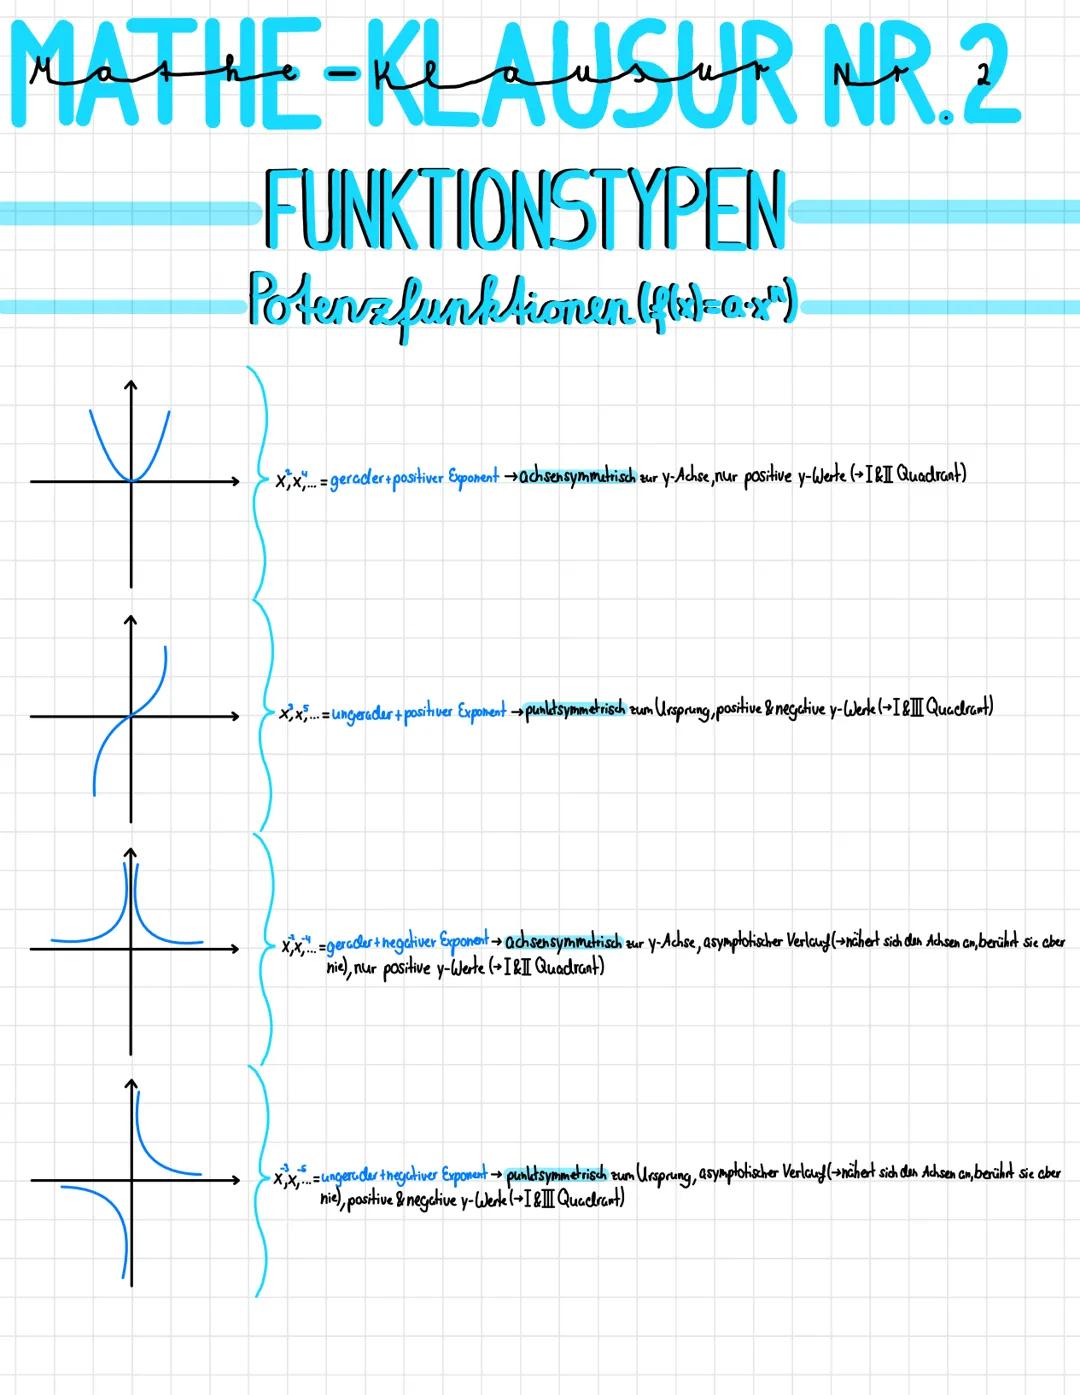 MATHE-KLAUSUR NR.2
Mathe-Klausur Nr 2
FUNKTIONSTYPEN
Potenzfunktionen (f(x)=a·xⁿ)
x², x⁴,... = gerader + positiver Exponent → achsensymmetrisch zur y-Achse, nur positive y-Werte (→ I & II Quadrant)
x³, x⁵,... = ungerader + positiver Exponent → punktsymmetrisch zum Ursprung, positive & negative y-Werte (→ I & III Quadrant)
= gerader + negativer Exponent → achsensymmetrisch zur y-Achse, asymptotischer Verlauf (→ nähert sich den Achsen an, berührt sie aber
nie), nur positive y-Werte (→ I & II Quadrant)
x⁻³, x⁻⁵,... = ungerader + negativer Exponent → punktsymmetrisch zum Ursprung, asymptotischer Verlauf (→ nähert sich den Achsen an, berührt sie aber
nie), positive & negative y-Werte (→ I & III Quadrant)